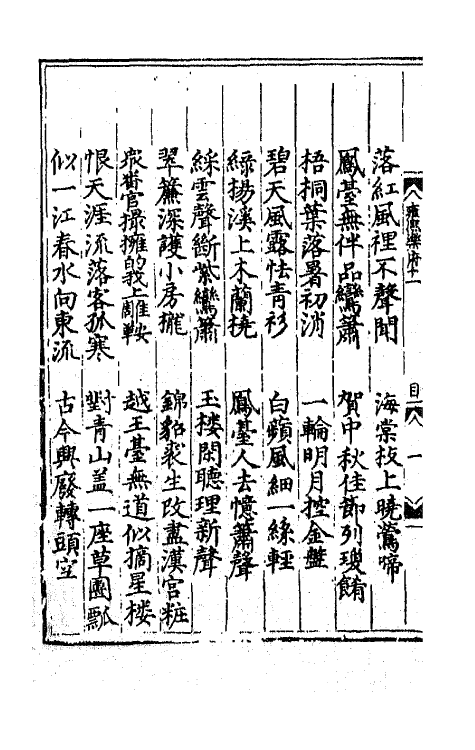 雍熈樂府十一
目
一
落紅風裡不聲聞　海棠技上曉鶯啼
鳳臺無伴品鸞簫　賀中秋佳節列瓊餚
梧桐葉落暑初消　一輪明月控金盤
碧天風露怯青衫　白蘋風細一絲輕
綠楊溪上木蘭橈　鳳臺人去憶簫聲
綵雲聲斷紫鸞簫　玉楼閑聽理新聲
翠簾深護小房櫳　錦貂裘生改盡漢宮粧
衆官撮擁的我上雕鞍　越王臺無道似摘星楼
恨天涯流落客孤寒　對青山盖一座草團瓢
似一江春水向東流　古今興廢轉頭空